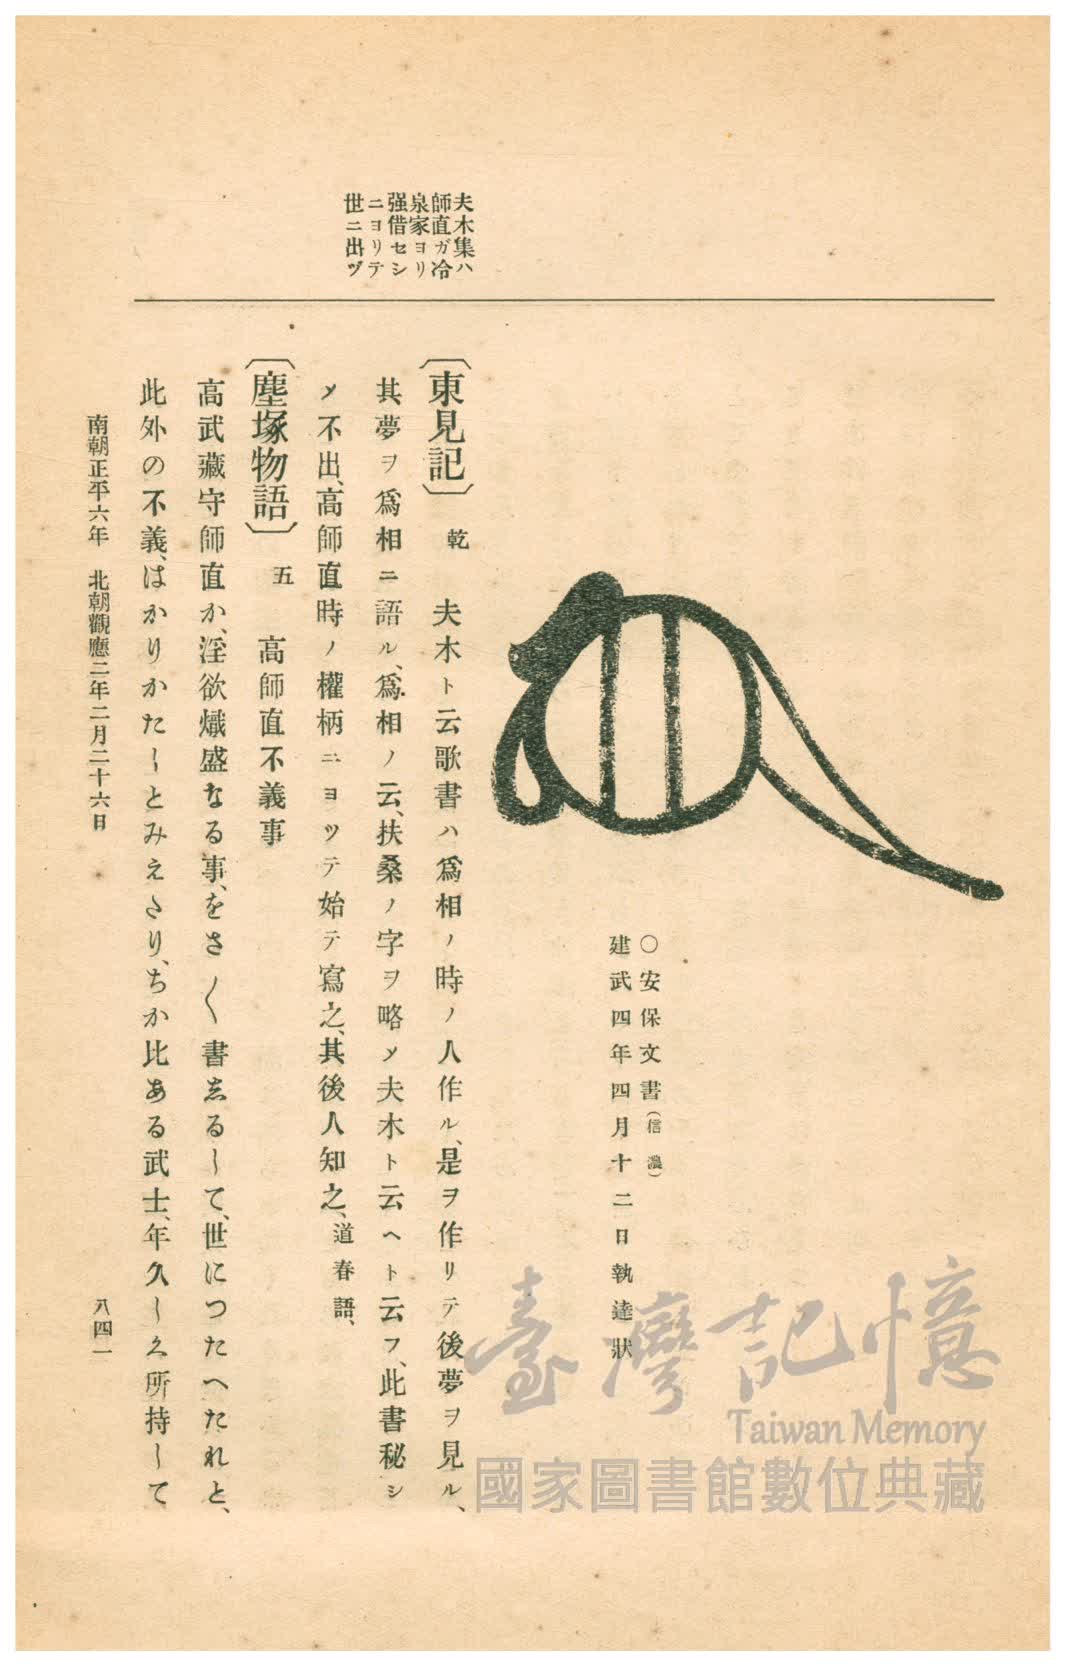 夫木集ハ
師直ガ冷
泉家ヨリ
强借セシ
ニヨリテ
世ニ出ヅ
〇安保文書(信濃)
建武四年四月十二日執達狀
〔東見記〕乾 夫木ト云歌書ハ爲相ノ時ノ人作ル、是ヲ作リテ後夢ヲ見ル、
其夢ヲ爲相ニ語ル、爲相ノ云、扶桑ノ字ヲ略〆夫木ト云ヘト云フ、此書秘シ
〆不出、高師直時ノ權柄ニヨツテ始テ寫之、其後人知之、道春語、
〔塵塚物語〕五 高師直不義事
高武藏守師直か、淫欲熾盛なる事、をさ〱書しるして、世につたへたれと、
此外の不義、はかりかたしとみえたり、ちか比ある武士、年久しく所持して
南朝正平六年 北朝觀應二年二月二十六日
八四一
臺灣記憶
Taiwan Memory
國家圖書館數位典藏